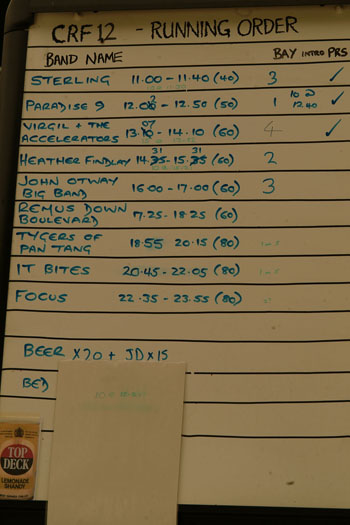 CRF12 - RUNNING ORDER
BAND NAME BAY INTRO PRS
STERLING 11.00 - 11.40 (40) 3 ✓
PARADISE 9 12.00 - 12.50 (50) 1 12.40 ✓
VIRGIL + THE ACCELERATORS 13.10 - 14.10 (60) 4 ✓
07
31 31
HEATHER FINDLAY 14.35 - 15.35 (60) 2
JOHN OTWAY BIG BAND 16.00 - 17.00 (60) 3
REMUS DOWN BOULEVARD 17.25 - 18.25 (60)
TYGERS OF PAN TANG 18.55 20.15 (80)
IT BITES 20.45 - 22.05 (80)
FOCUS 22.35 - 23.55 (80)
BEER X20 + JD X15
BED
TOP
DECK
LEMONADE
SHANDY